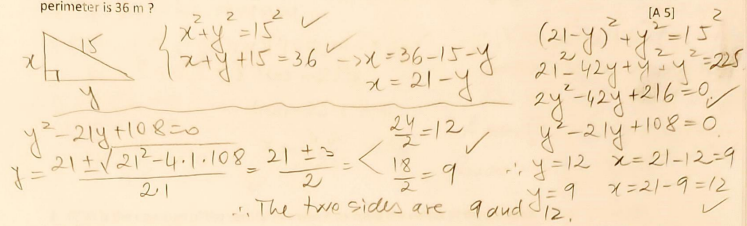 perimeter is 36 m ?
[A 5]
x
15
y
x² + y² = 15² ✓
x + y + 15 = 36 ✓ -> x = 36 - 15 - y
x = 21 - y
(21 - y)² + y² = 15²
21² - 42y + y² + y² = 225
2y² - 42y + 216 = 0 ✓
y² - 21y + 108 = 0
y² - 21y + 108 = 0
y = 21 ± √21² - 4·1·108 / 2·1 = 21 ± 3 / 2 = < 24/2 = 12 ✓
18/2 = 9
∴ y = 12 x = 21 - 12 = 9
y = 9 x = 21 - 9 = 12 ✓
∴ The two sides are 9 and 12.